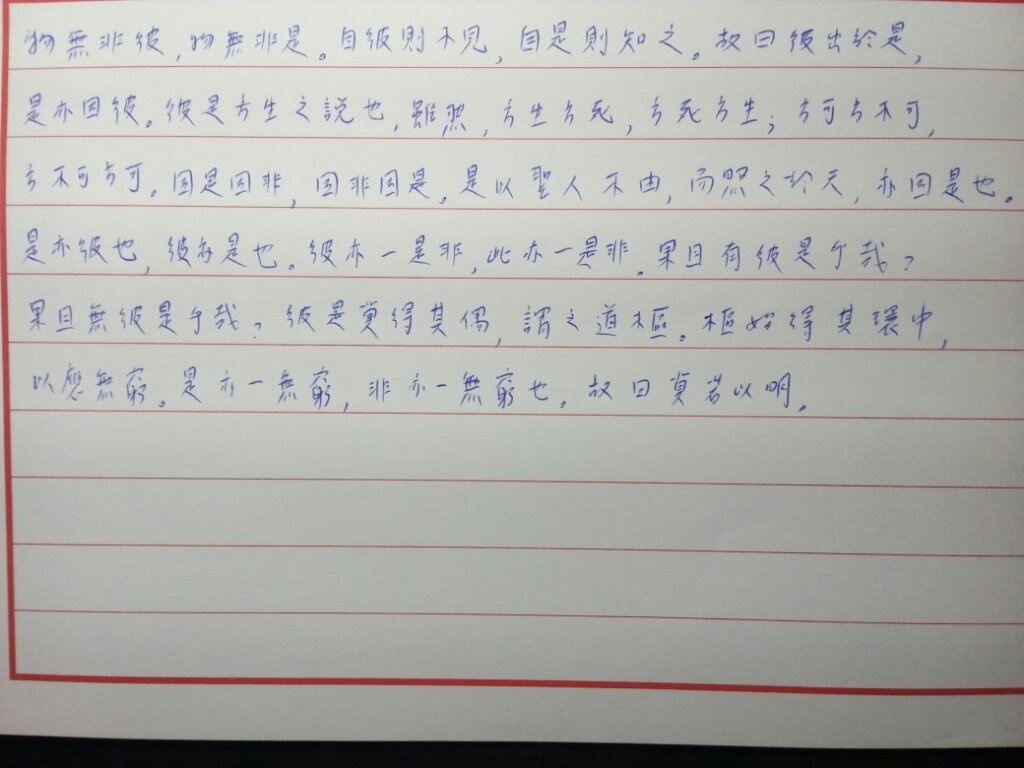 物無非彼,物無非是。自彼則不見,自是則知之。故曰彼出於是,
是亦因彼。彼是方生之説也,雖然,方生方死,方死方生;方可方不可,
方不可方可。因是因非,因非因是。是以聖人不由,而照之於天,亦因是也。
是亦彼也,彼亦是也。彼亦一是非,此亦一是非。果且有彼是乎哉?
果且無彼是乎哉?彼是莫得其偶,謂之道樞。樞始得其環中,
以應無窮。是亦一無窮,非亦一無窮也。故曰莫若以明。